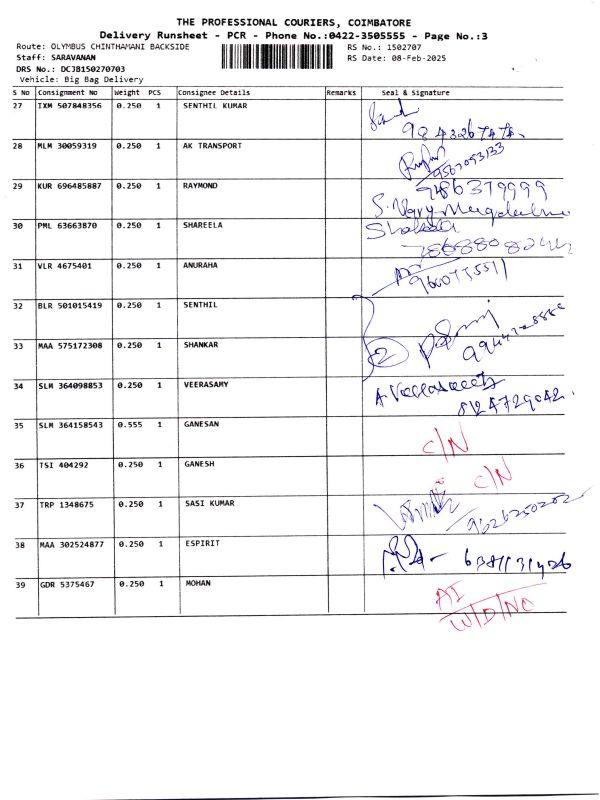 THE PROFESSIONAL COURIERS, COIMBATORE
Delivery Runsheet - PCR - Phone No.:0422-3505555 - Page No.:3
Route: OLYMBUS CHINTHAMANI BACKSIDE RS No.: 1502707
Staff: SARAVANAN RS Date: 08-Feb-2025
DRS No.: DCJB150270703
Vehicle: Big Bag Delivery
S No Consignment No Weight PCS Consignee Details Remarks Seal & Signature
27 IXM 507848356 0.250 1 SENTHIL KUMAR
28 MLM 30059319 0.250 1 AK TRANSPORT
9567093133
29 KUR 696485887 0.250 1 RAYMOND 9486379999
30 PML 63663870 0.250 1 SHAREELA
31 VLR 4675401 0.250 1 ANURAHA
32 BLR 501015419 0.250 1 SENTHIL
33 MAA 575172308 0.250 1 SHANKAR 2
34 SLM 364098853 0.250 1 VEERASAMY
8124729042
35 SLM 364158543 0.555 1 GANESAN C/N
36 TSI 404292 0.250 1 GANESH C/N
37 TRP 1348675 0.250 1 SASI KUMAR 9626250202
38 MAA 302524877 0.250 1 ESPIRIT
39 GDR 5375467 0.250 1 MOHAN AI
W/D/NO